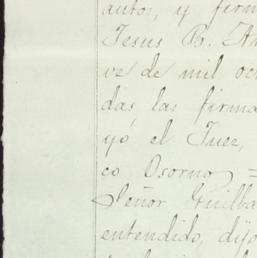 autos, y firm
Jesus B. An
vz de mil och
das las firma
yó el Juez,
co Osorno =
Señor Guilba
entendido, dijo